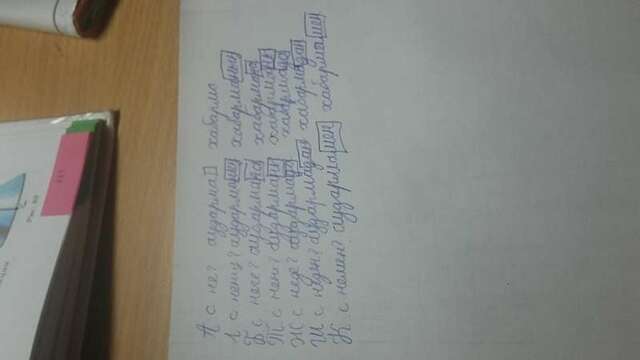 Рис. 80
А с не? аударма хабарма
І с ненің? аударманың хабарманың
Б с неге? аудармаға хабармаға
Т с нені? аударманы хабарманы
Ж с неде? аудармада хабармада
Ш с неден? аудармадан хабармадан
К с немен? аудармамен хабармамен